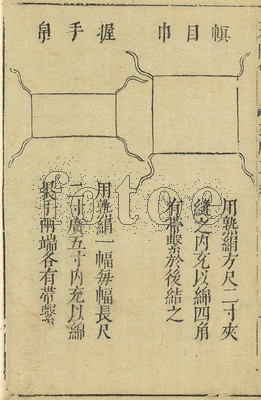 幎目巾
用熟絹方尺二寸夾
縫之內充以綿四角
有帶繫於後結之
握手帛
用熟絹一幅每幅長尺
二寸廣五寸內充以綿
于兩端各有帶繫
fotoe